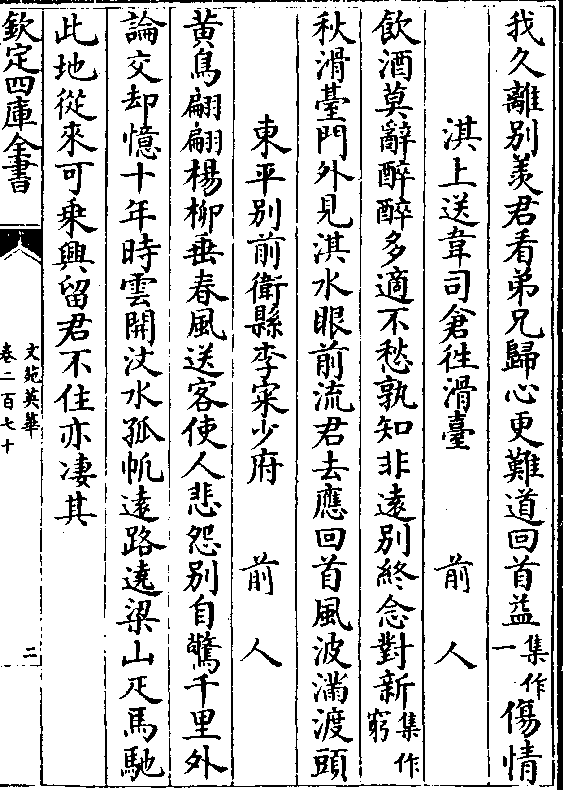 我久離別羨君看弟兄歸心更難道回首益集作一傷情
淇上送韋司倉徃滑臺　前人
飲酒莫辭醉醉多適不愁孰知非遠別終念對新集作窮
秋滑臺門外見淇水眼前流君去應回首風波滿渡頭
東平別前衛縣李寀少府　前人
黄鳥翩翩楊柳垂春風送客使人悲怨別自驚千里外
論交却憶十年時雲開汶水孤帆遠路遶梁山疋馬馳
此地從來可乗興留君不住亦凄其
欽定四庫全書
文苑英華
卷二百七十
二